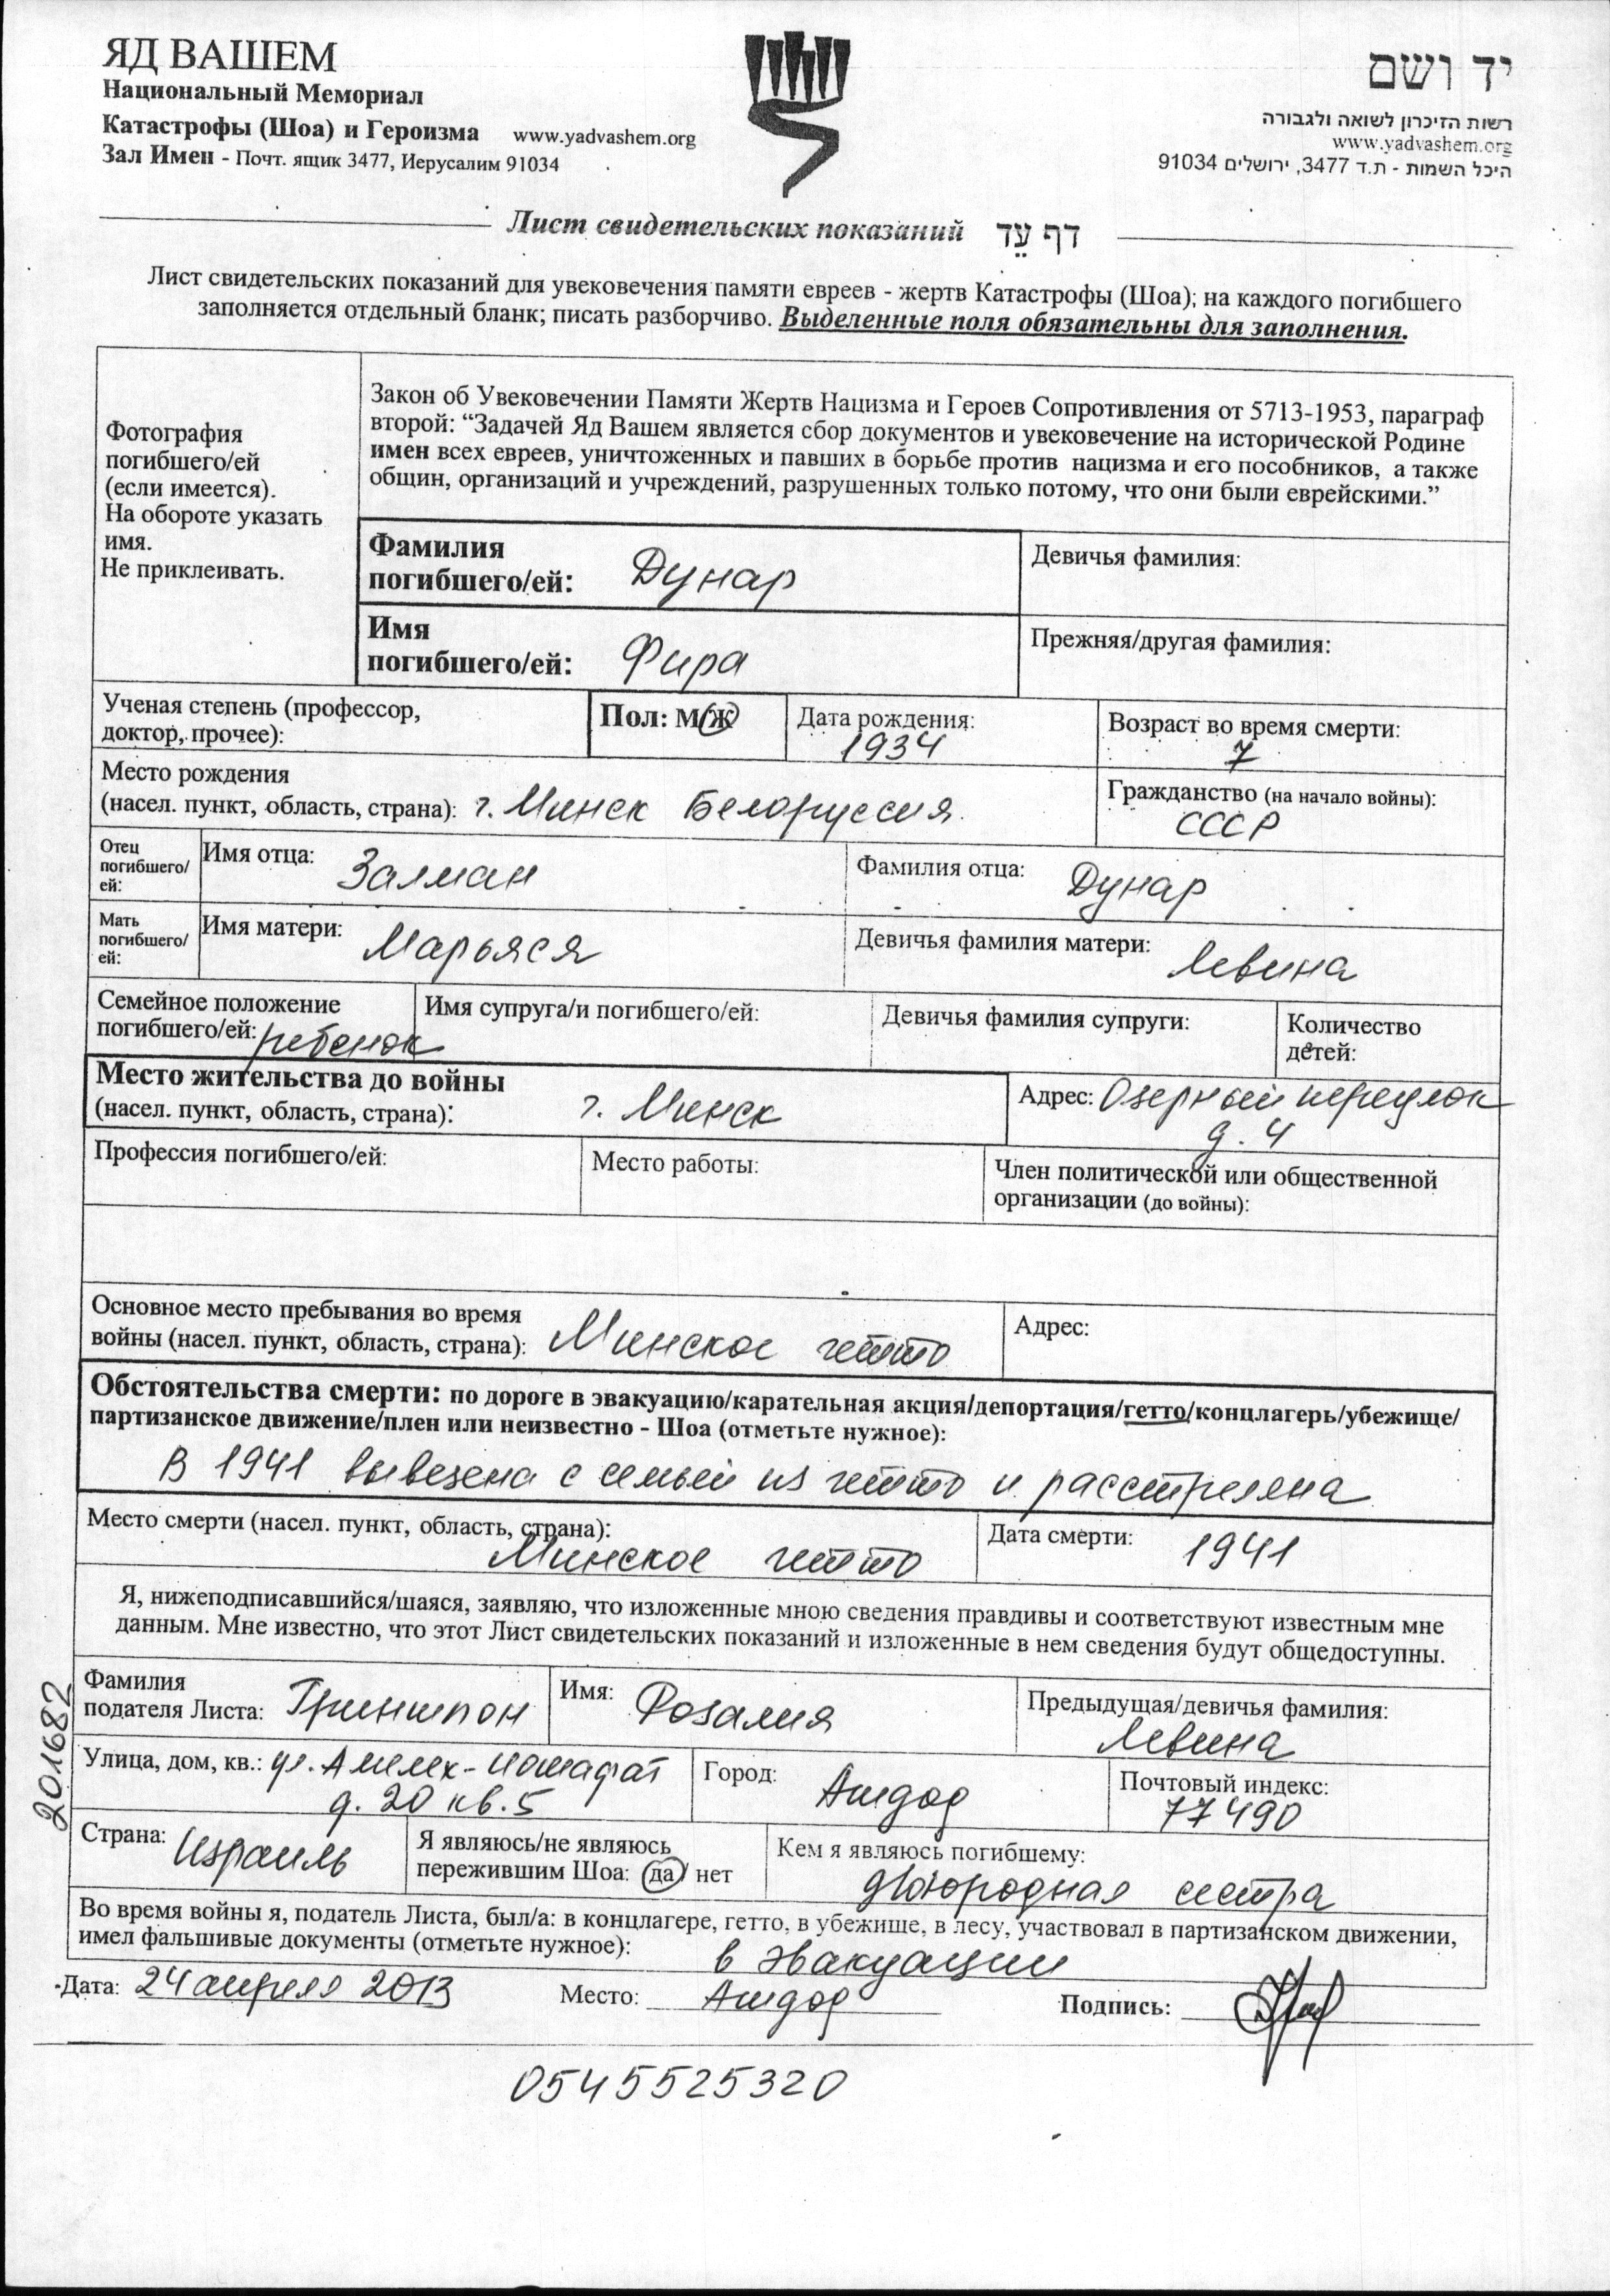 ЯД ВАШЕМ
Национальный Мемориал
Катастрофы (Шоа) и Героизма www.yadvashem.org
Зал Имен - Почт. ящик 3477, Иерусалим 91034
יד ושם
רשות הזיכרון לשואה ולגבורה
www.yadvashem.org
היכל השמות - ת.ד 3477, ירושלים 91034
Лист свидетельских показаний דף עֵד
Лист свидетельских показаний для увековечения памяти евреев - жертв Катастрофы (Шоа); на каждого погибшего
заполняется отдельный бланк; писать разборчиво. Выделенные поля обязательны для заполнения.
Фотография
погибшего/ей
(если имеется).
На обороте указать
имя.
Не приклеивать.
Закон об Увековечении Памяти Жертв Нацизма и Героев Сопротивления от 5713-1953, параграф
второй: “Задачей Яд Вашем является сбор документов и увековечение на исторической Родине
имен всех евреев, уничтоженных и павших в борьбе против нацизма и его пособников, а также
общин, организаций и учреждений, разрушенных только потому, что они были еврейскими.”
Фамилия
погибшего/ей: Дунар
Девичья фамилия:
Имя
погибшего/ей: Фира
Прежняя/другая фамилия:
Ученая степень (профессор,
доктор, прочее):
Пол: М/Ж
Дата рождения:
1934
Возраст во время смерти:
7
Место рождения
(насел. пункт, область, страна): г. Минск Белоруссия.
Гражданство (на начало войны):
СССР
Отец
погибшего/
ей:
Имя отца: Залман
Фамилия отца: Дунар
Мать
погибшего/
ей:
Имя матери: Марьяся
Девичья фамилия матери: Левина
Семейное положение
погибшего/ей: ребенок
Имя супруга/и погибшего/ей:
Девичья фамилия супруги:
Количество
детей:
Место жительства до войны
(насел. пункт, область, страна): г. Минск
Адрес: Озерный переулок
д. 4
Профессия погибшего/ей:
Место работы:
Член политической или общественной
организации (до войны):
Основное место пребывания во время
войны (насел. пункт, область, страна): Минское гетто
Адрес:
Обстоятельства смерти: по дороге в эвакуацию/карательная акция/депортация/гетто/концлагерь/убежище/
партизанское движение/плен или неизвестно - Шоа (отметьте нужное):
В 1941 вывезена с семьей из гетто и расстреляна
Место смерти (насел. пункт, область, страна):
Минское гетто
Дата смерти: 1941
Я, нижеподписавшийся/шаяся, заявляю, что изложенные мною сведения правдивы и соответствуют известным мне
данным. Мне известно, что этот Лист свидетельских показаний и изложенные в нем сведения будут общедоступны.
201682
Фамилия
подателя Листа: Гриншпон
Имя: Розалия
Предыдущая/девичья фамилия:
Левина
Улица, дом, кв.: ул.
д. 20 кв. 5
Город: Ашдод
Почтовый индекс:
77490
Страна: Израиль
Я являюсь/не являюсь
пережившим Шоа: да/ нет
Кем я являюсь погибшему:
двоюродная сестра
Во время войны я, податель Листа, был/а: в концлагере, гетто, в убежище, в лесу, участвовал в партизанском движении,
имел фальшивые документы (отметьте нужное): в эвакуации
Дата: 24 апреля 2013 Место: Ашдод Подпись:
0545525320